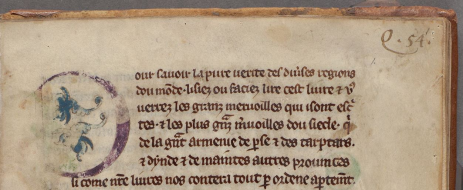 Q. 54.
our sauoir la pure uerite des diuses regions
dou mōde. lisiez ou faciez lire cest liure & ꝟ
uerrez les granz meruoilles qui isont esc̄
tes. & les plus gn̄z mūoilles dou siecle. q̄
de la gn̄t armenie de ꝑse & des tartars.
& dȳnde & de maintes autres prouinces
si come nr̄e liures nos contera tout ꝑ ordene apteint.